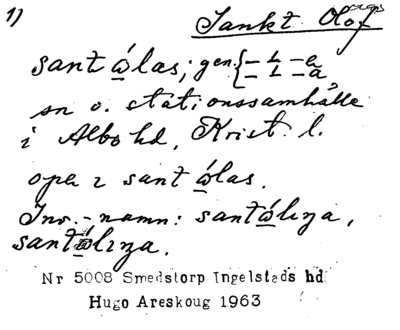 1)
Sankt Olof
santώ̲las; gen. {– ⊥ –a
– ⊥ –a
sn o. stationssamhälle
i Albo hd, Krist. l.
opa ɪ santώ̲las.
Inv.-namn: santώ̲lɪŋa,
santώ̲lɪŋa.
Nr 5008 Smedstorp Ingelstads hd
Hugo Areskoug 1963